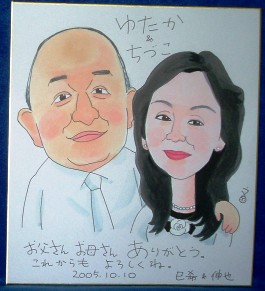 ゆたか
&
ちづこ
お父さん お母さん ありがとう。
これからも よろしくね。
2005.10.10